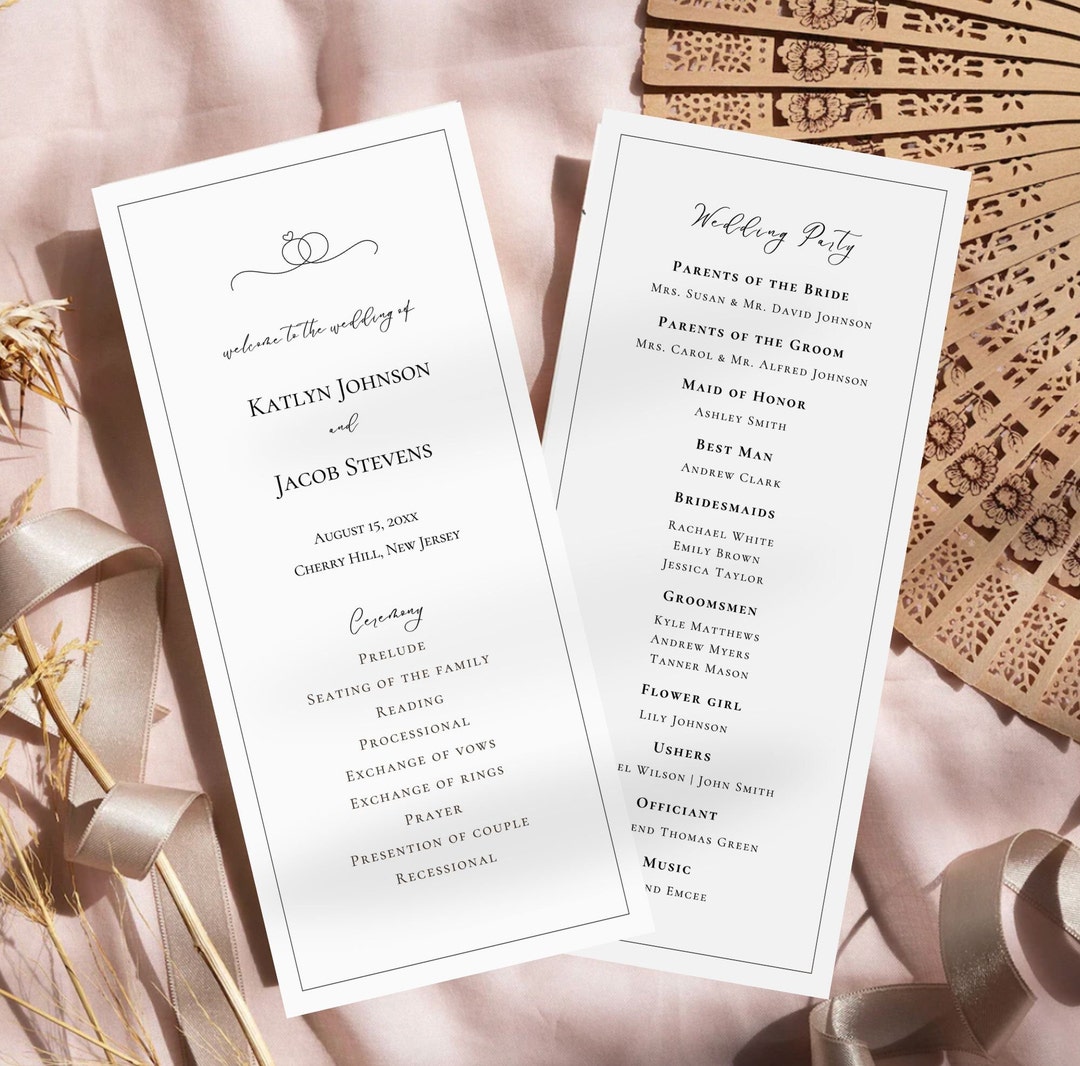 welcome to the wedding of
Katlyn Johnson
and
Jacob Stevens
August 15, 20XX
Cherry Hill, New Jersey
Ceremony
Prelude
Seating of the family
Reading
Processional
Exchange of vows
Exchange of rings
Prayer
Presention of couple
Recessional
Wedding Party
Parents of the Bride
Mrs. Susan & Mr. David Johnson
Parents of the Groom
Mrs. Carol & Mr. Alfred Johnson
Maid of Honor
Ashley Smith
Best Man
Andrew Clark
Bridesmaids
Rachael White
Emily Brown
Jessica Taylor
Groomsmen
Kyle Matthews
Andrew Myers
Tanner Mason
Flower girl
Lily Johnson
Ushers
Wilson | John Smith
Officiant
Thomas Green
Music
Emcee